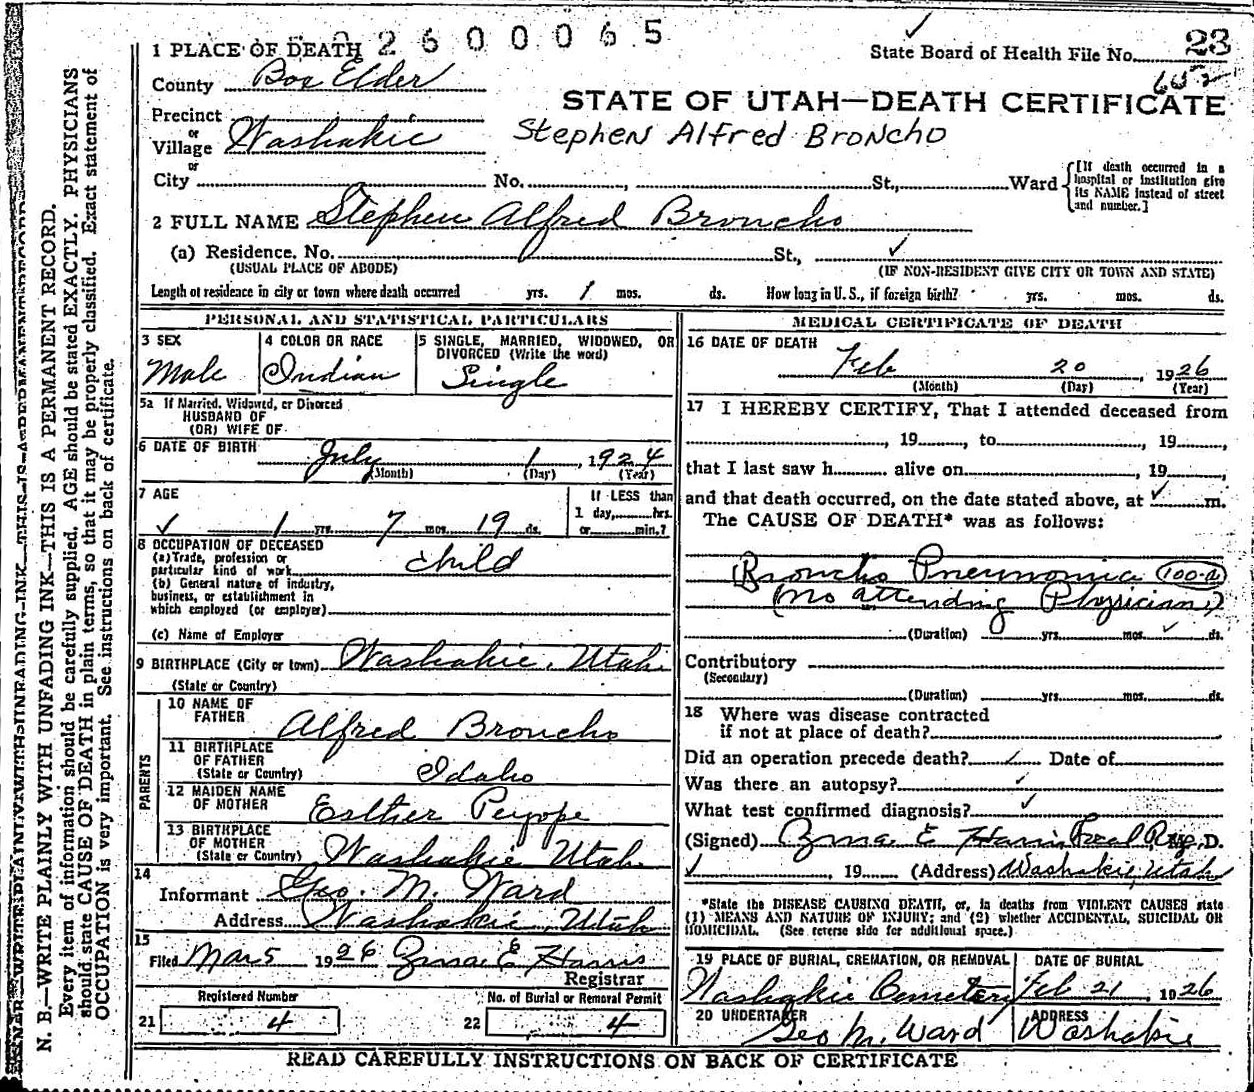 2600065
State Board of Health File No. 23
1 PLACE OF DEATH
County Box Elder
STATE OF UTAH—DEATH CERTIFICATE
Precinct
or
Village Washakie
Stephen Alfred Broncho
or
City No. , St., Ward
[If death occurred in a hospital or institution give its NAME instead of street and number.]
2 FULL NAME Stephen Alfred Broncho
(a) Residence. No. St., ✓
(USUAL PLACE OF ABODE) (IF NON-RESIDENT GIVE CITY OR TOWN AND STATE)
Length of residence in city or town where death occurred yrs. 1 mos. ds. How long in U.S., if foreign birth? yrs. mos. ds.
PERSONAL AND STATISTICAL PARTICULARS
3 SEX 4 COLOR OR RACE 5 SINGLE, MARRIED, WIDOWED, OR
DIVORCED (Write the word)
Male Indian Single
5a If Married, Widowed, or Divorced
HUSBAND OF
(OR) WIFE OF
6 DATE OF BIRTH July 1, 1924
(Month) (Day) (Year)
7 AGE If LESS than
1 day, hrs.
✓ 1 yrs. 7 mos. 19 ds. or min.?
8 OCCUPATION OF DECEASED
(a) Trade, profession or
particular kind of work child
(b) General nature of industry,
business, or establishment in
which employed (or employer)
(c) Name of Employer
9 BIRTHPLACE (City or town) Washakie, Utah
(State or Country)
PARENTS
10 NAME OF
FATHER Alfred Broncho
11 BIRTHPLACE
OF FATHER
(State or Country) Idaho
12 MAIDEN NAME
OF MOTHER Esther Peyope
13 BIRTHPLACE
OF MOTHER
(State or Country) Washakie Utah
14
Informant Geo. M. Ward
Address Washakie, Utah
15
Filed Mar 5 1926 E Harris
Registrar
Registered Number No. of Burial or Removal Permit
21 4 22 4
MEDICAL CERTIFICATE OF DEATH
16 DATE OF DEATH
Feb 20, 1926
(Month) (Day) (Year)
17 I HEREBY CERTIFY, That I attended deceased from
, 19 , to , 19 ,
that I last saw h alive on , 19 ,
and that death occurred, on the date stated above, at ✓ m.
The CAUSE OF DEATH* was as follows:
Broncho Pneumonia 100-a
(No attending Physician)
(Duration) yrs. mos. ✓ ds.
Contributory
(Secondary)
(Duration) yrs. mos. ds.
18 Where was disease contracted
if not at place of death?
Did an operation precede death? ✓ Date of
Was there an autopsy? ✓
What test confirmed diagnosis? ✓
(Signed) E Harris Local Reg. M.D.
✓ , 19 (Address) Washakie, Utah
*State the DISEASE CAUSING DEATH, or, in deaths from VIOLENT CAUSES state
(1) MEANS AND NATURE OF INJURY; and (2) whether ACCIDENTAL, SUICIDAL OR
HOMICIDAL. (See reverse side for additional space.)
19 PLACE OF BURIAL, CREMATION, OR REMOVAL DATE OF BURIAL
Washakie Cemetery Feb 21, 1926
20 UNDERTAKER ADDRESS
Geo M. Ward Washakie
READ CAREFULLY INSTRUCTIONS ON BACK OF CERTIFICATE
N. B.—WRITE PLAINLY WITH UNFADING INK—THIS IS A PERMANENT RECORD.
Every item of information should be carefully supplied. AGE should be stated EXACTLY. PHYSICIANS
should state CAUSE OF DEATH in plain terms, so that it may be properly classified. Exact statement of
OCCUPATION is very important. See instructions on back of certificate.